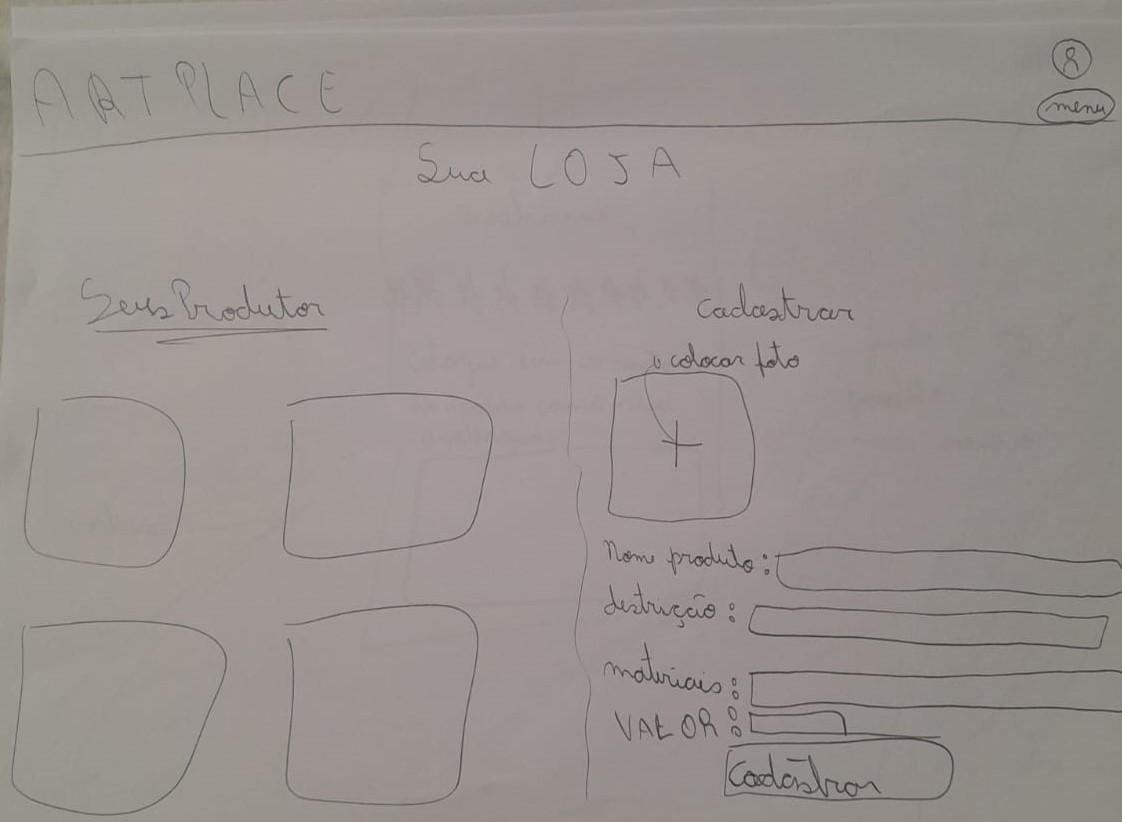 ARTPLACE
menu
Sua LOJA
Seus Produtor
Cadastrar
colocar foto
+
Nome produto:
destrição:
materiais:
VALOR:
Cadastrar